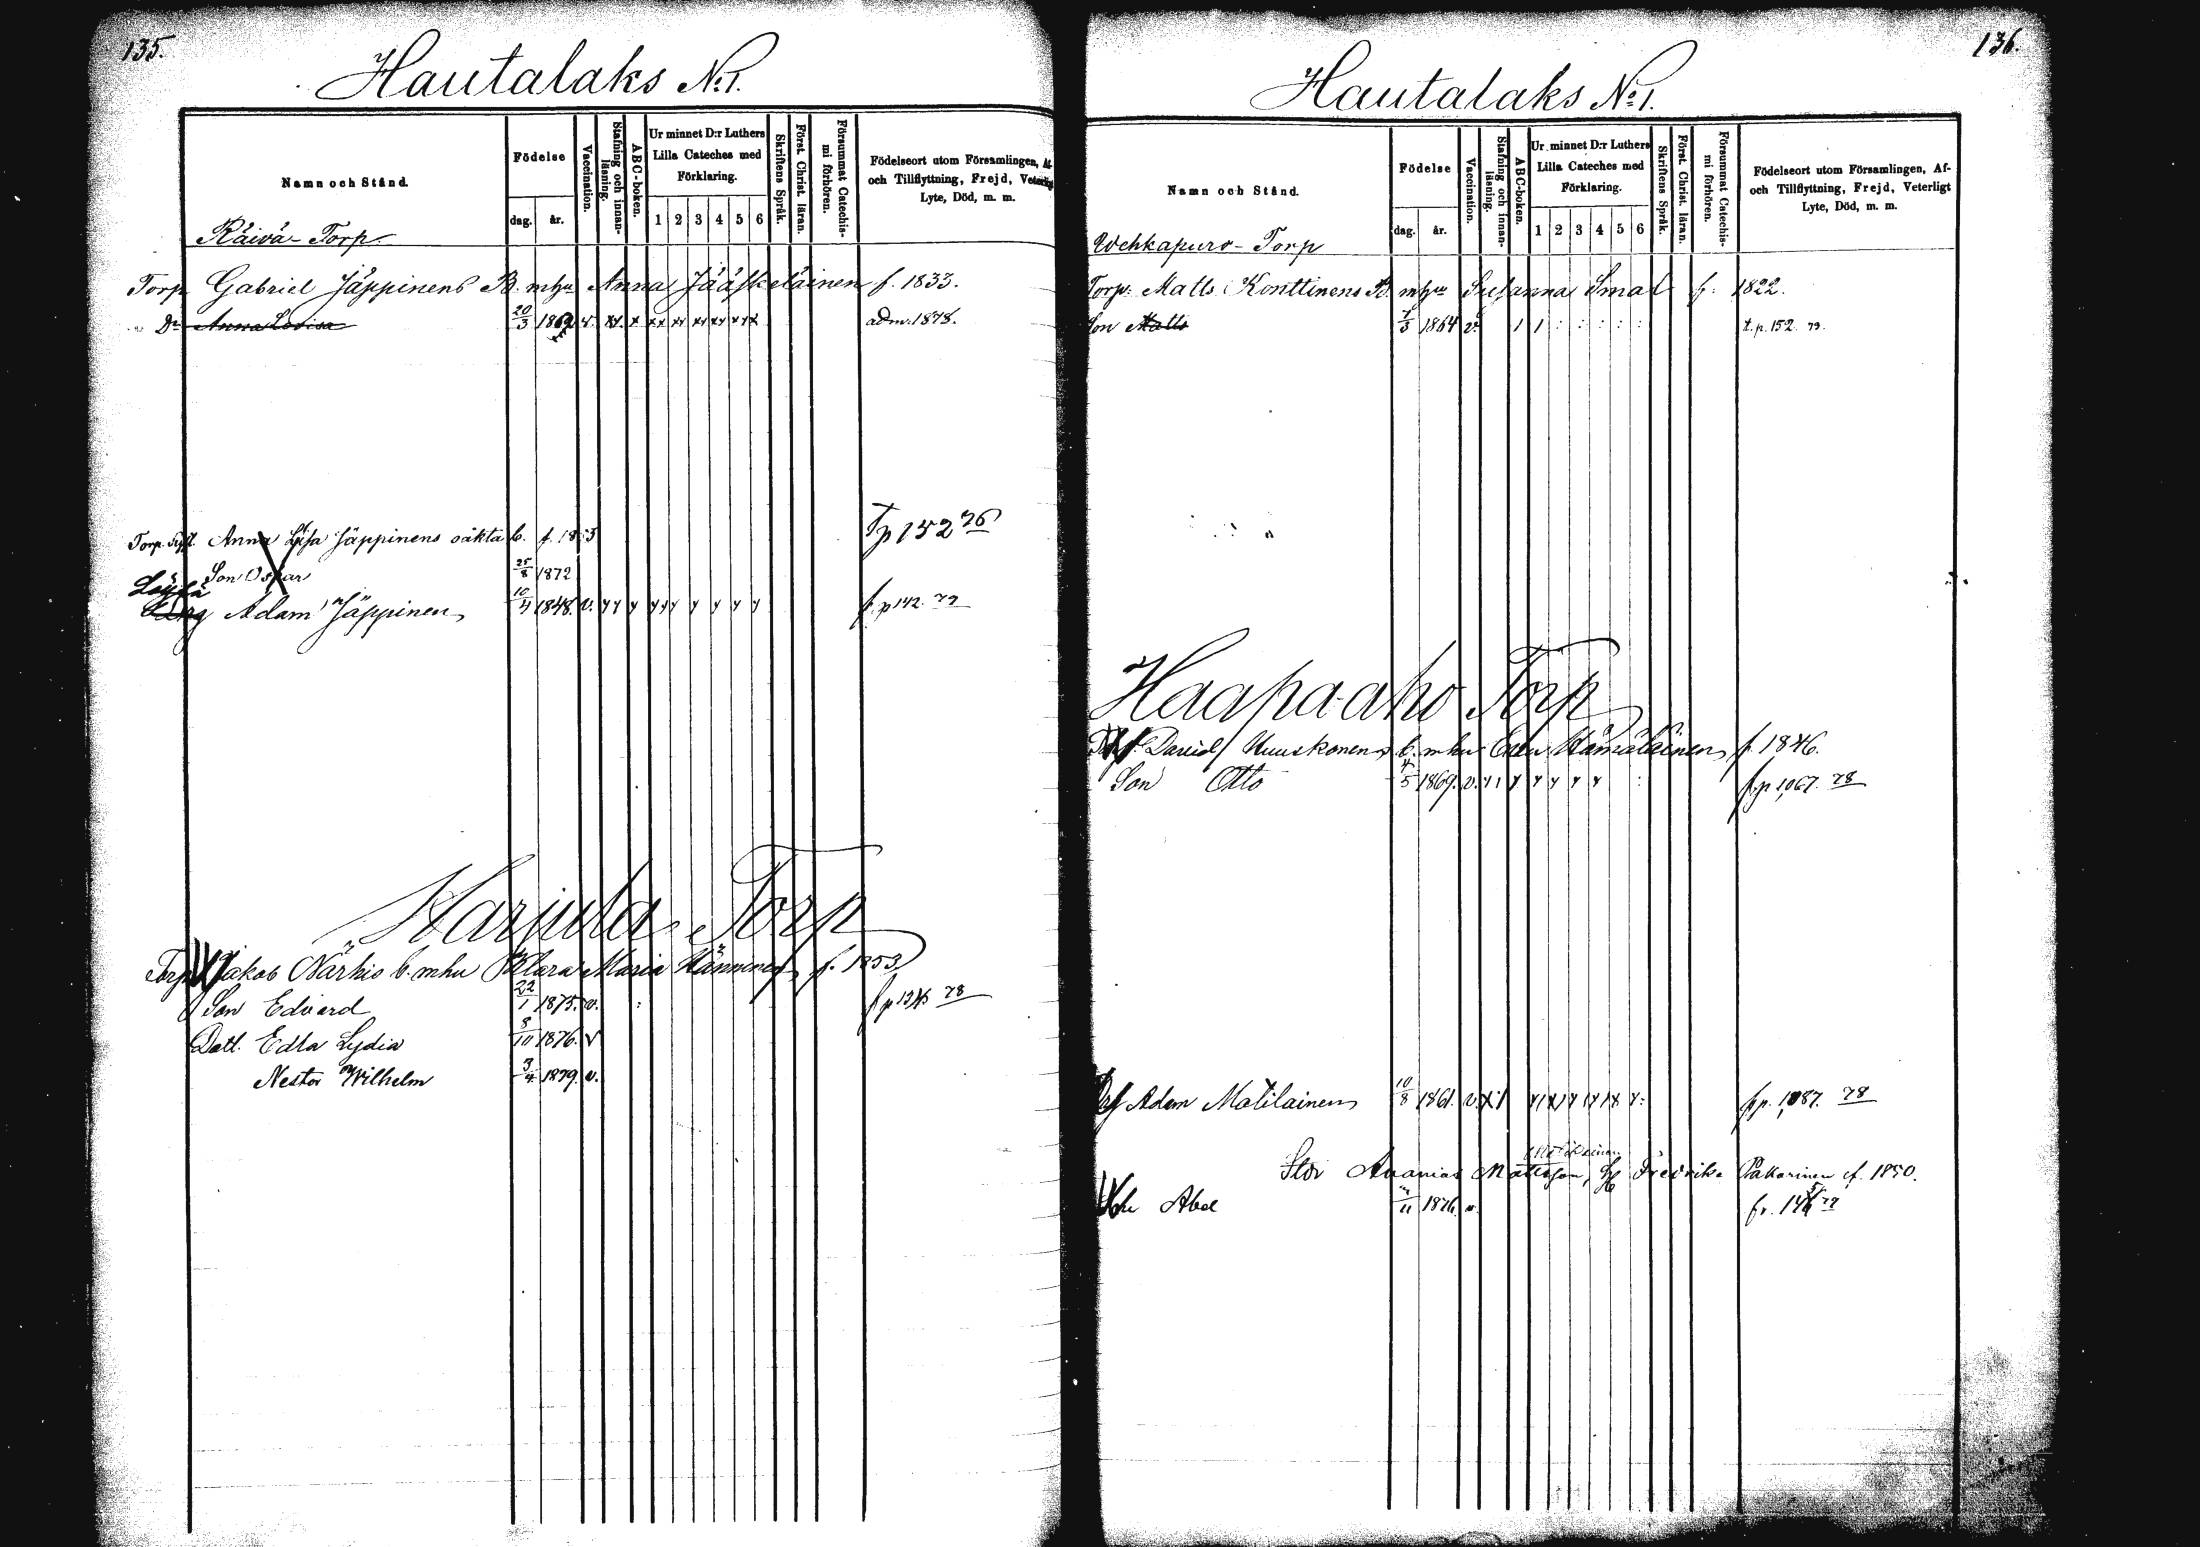 135.
Hautalaks No 1.
Namn och Stånd.
Födelse
dag.
år.
Vaccination.
Stafning och innanläsning.
ABC-boken.
Ur minnet D:r Luthers
Lilla Cateches med
Förklaring.
1 2 3 4 5 6
Skriftens Språk.
Först. Christ. läran.
Försummat Catechismi förhören.
Födelseort utom Församlingen, Af-
och Tillflyttning, Frejd, Veterligt
Lyte, Död, m. m.
Räivä- Torp.
Torp Gabriel Jäppinens B. mhu Anna Jääskeläinen f. 1833.
Dr Anna Lovisa 20/3 1862 v. adm. 1878.
Torp. Anna Lisa Jäppinens oäkta b. f. 18
Tp 152 76
Son Oskar 25/8 1872
Adam Jäppinen 10/4 1848. v. f. p 142. 79
Harjula Torp
Torp Jakob Närhio b. mhu Klara Maria Hänninen f. 1853.
Son Edvard 22/1 1875. v. 78
Dott. Edla Lydia 8/10 1876. v
Nestor Wilhelm 3/4 1879. v.
136.
Hautalaks No 1.
Namn och Stånd.
Födelse
dag.
år.
Vaccination.
Stafning och innanläsning.
ABC-boken.
Ur minnet D:r Luthers
Lilla Cateches med
Förklaring.
1 2 3 4 5 6
Skriftens Språk.
Först. Christ. läran.
Försummat Catechismi förhören.
Födelseort utom Församlingen, Af-
och Tillflyttning, Frejd, Veterligt
Lyte, Död, m. m.
Wehkapuro- Torp
Torp. Matts Konttinens B. mhu Susanna Smal f. 1822.
Son Matts 7/3 1864 v. t. p. 152. 79.
Haapa-aho Torp
David Huuskonens b. mhu Eva Hämäläinen f. 1846.
Son Otto 4/5 1869. v. f. p 1067. 78
Adam Matilainen 10/8 1861. v. f. p. 1087. 78
Ananias Mattsson, Fredrika Pakarinen f. 1850.
Abel 11 1876. v. fr. 79